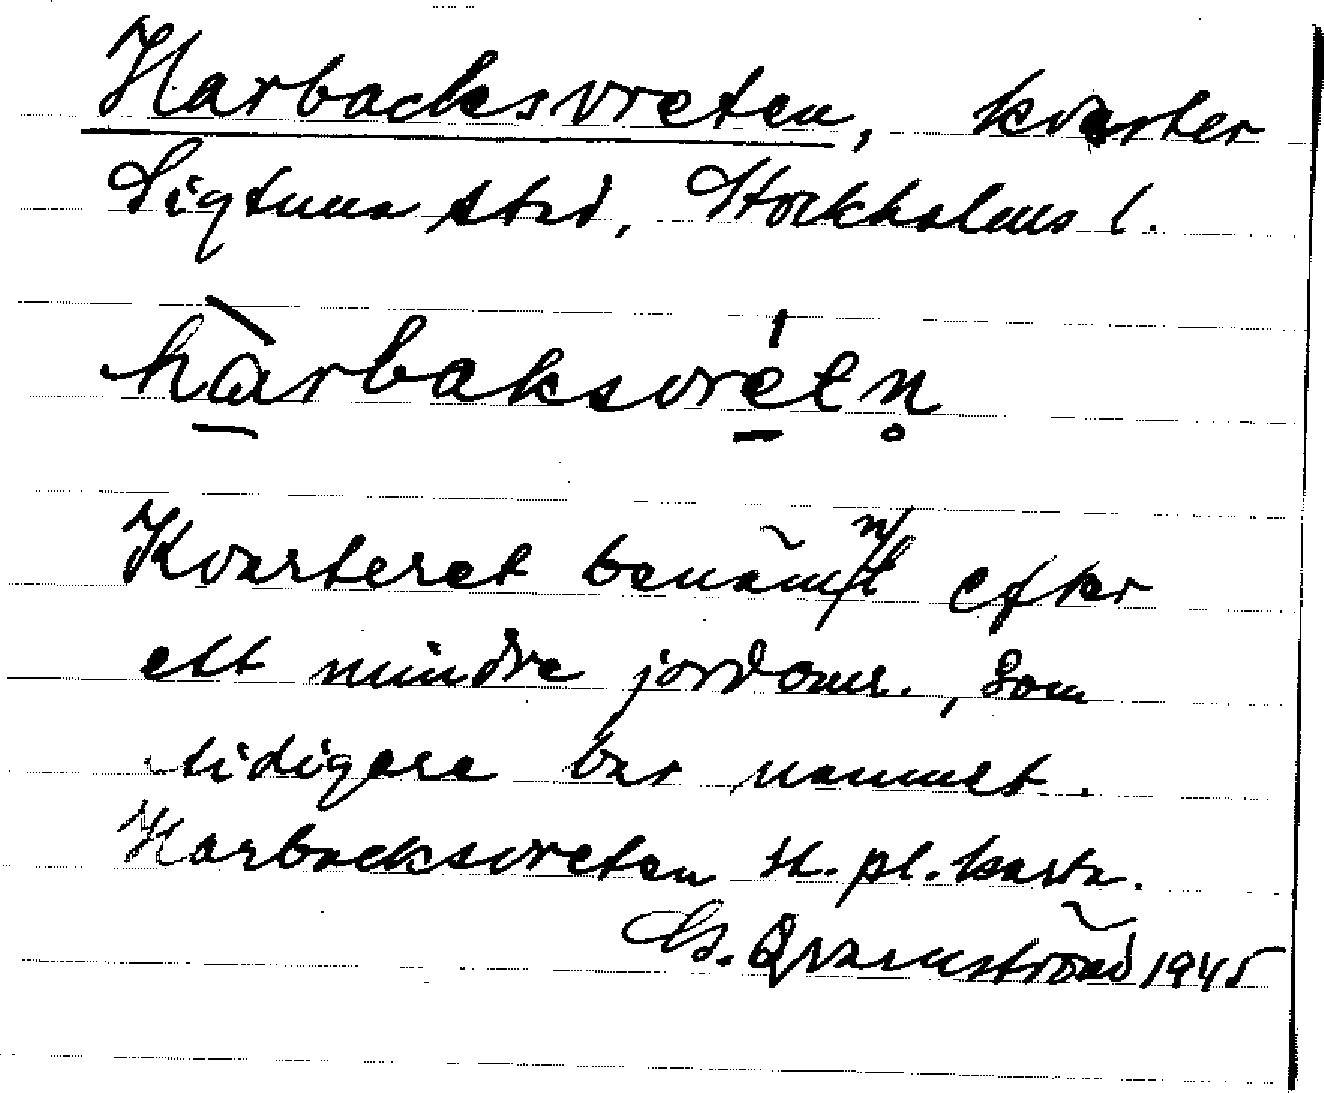 Harbacksvreten, kvarter
Sigtuna stad, Stockholms l.
hàrbaksvrétn̥
Kvarteret benämnt efter
ett mindre jordomr., som
tidigare bar namnet.
Harbacksvreten st. pl. karta.
G. Qvarnström 1945